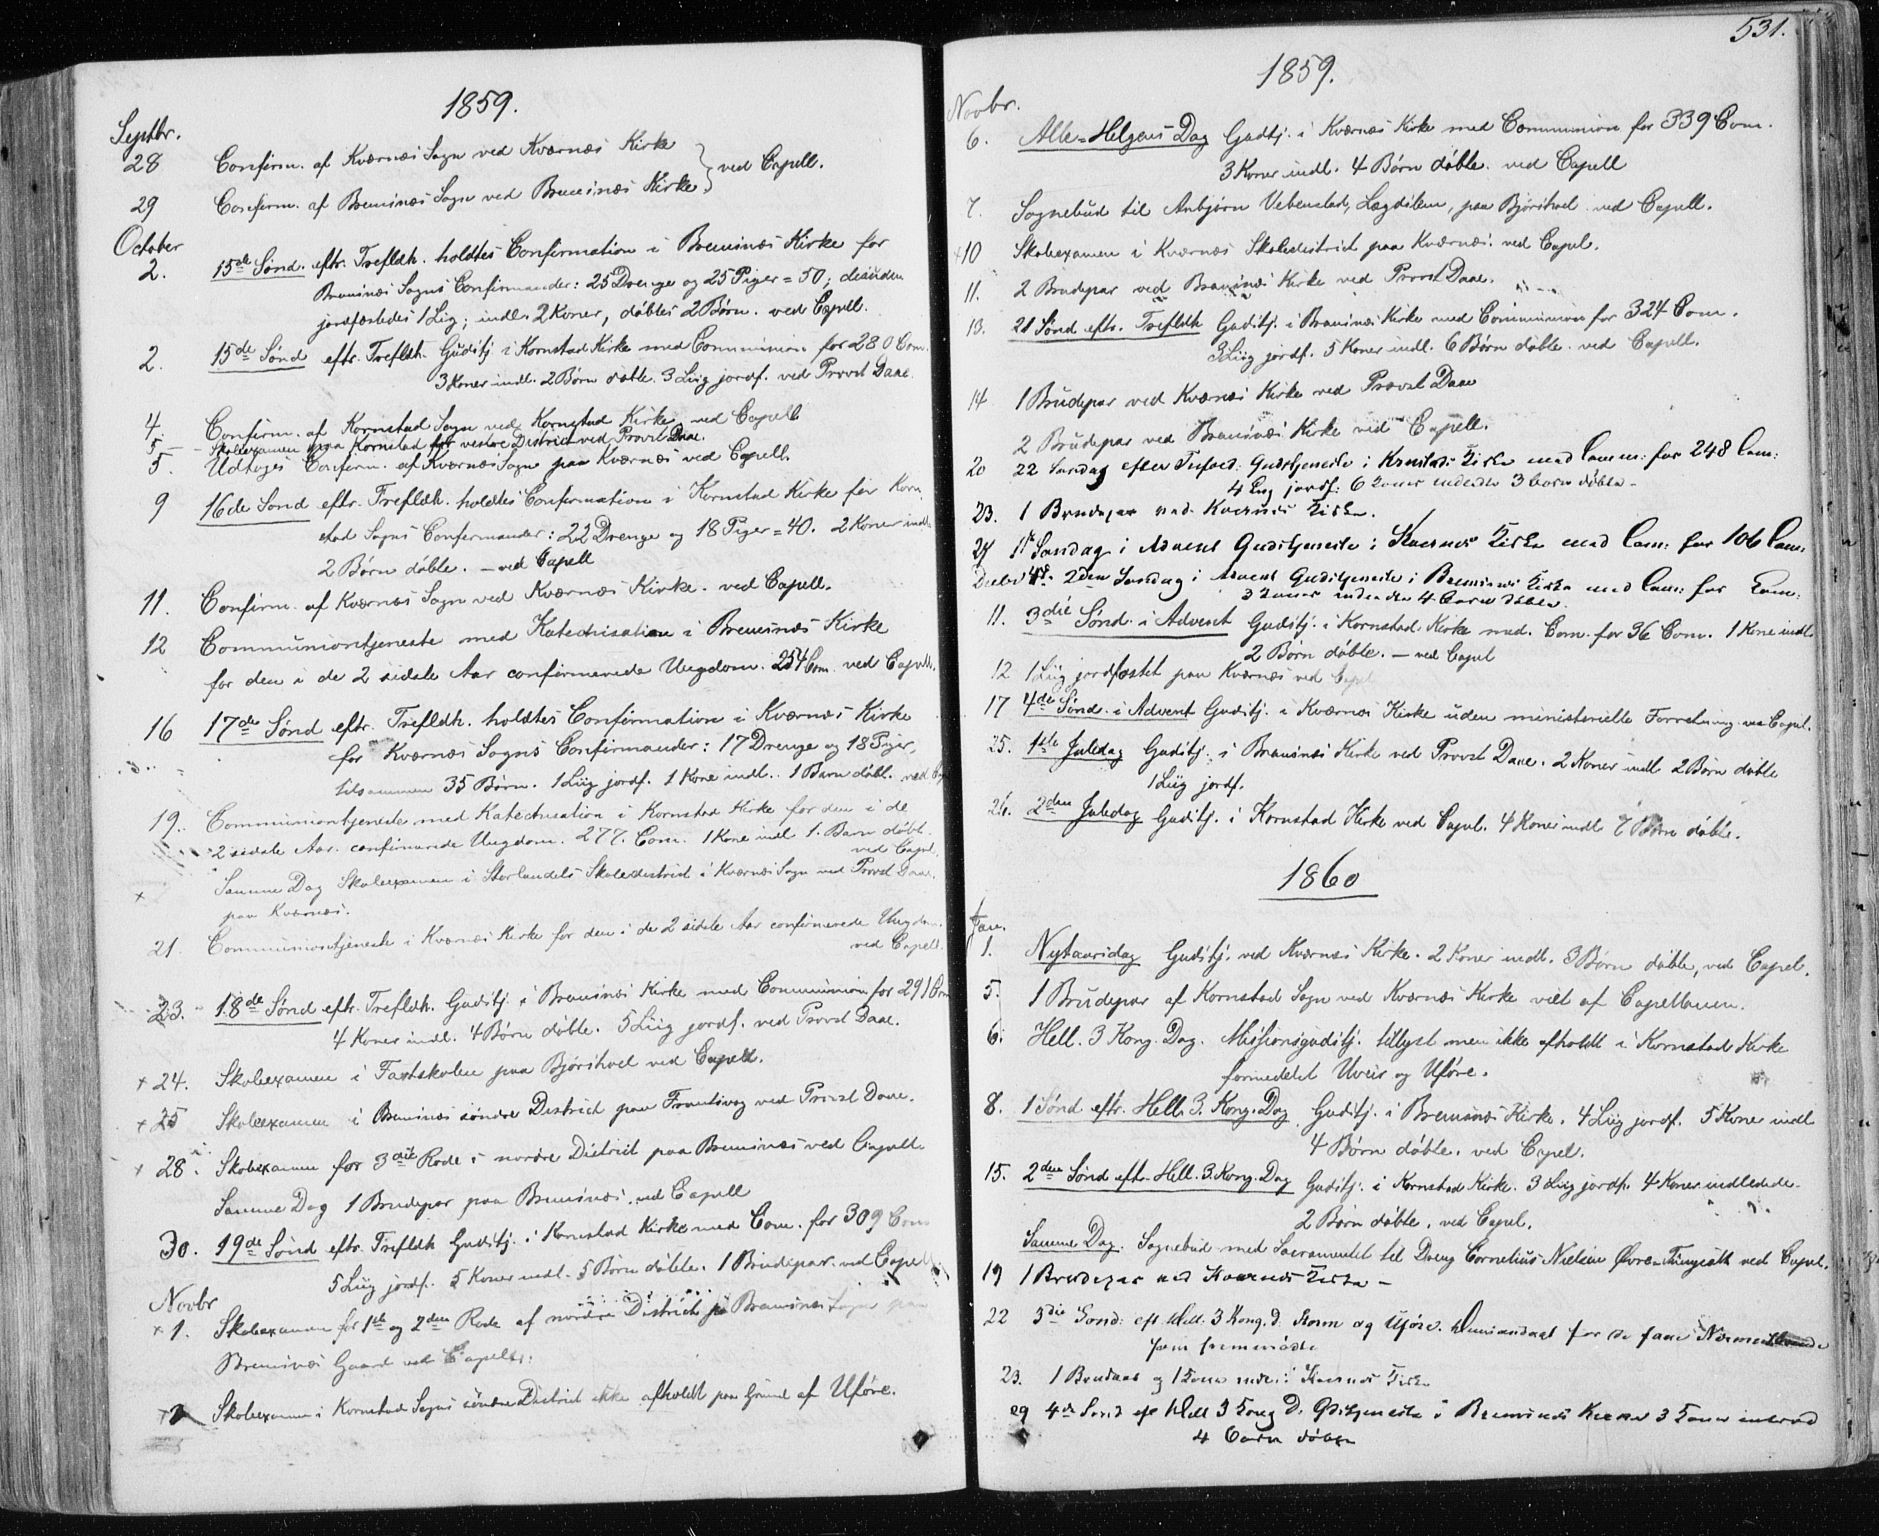 1859.
Septbr.
28 Confirm. af Kværnæs Sogn ved Kværnæs Kirke } ved Capell.
29 Confirm. af Bremsnæs Sogn ved Bremsnæs Kirke
October
2. 15de Sönd. eftr. Trefldh. holdtes Confirmation i Bremsnæs Kirke for
Bremsnæs Sogns Confirmander: 25 Drenge og 25 Piger = 50; desuden
jordfæstedes 1 Liig; indl. 2 Koner, döbtes 2 Börn. ved Capell.
2. 15de Sönd eftr. Trefldh. Gudstj i Kornstad Kirke med Communion for 280 Com.
3 Koner indl. 2 Börn döbte. 3 Liig jordf. ved Provst Daae.
4. Confirm. af Kornstad Sogn ved Kornstad Kirke ved Capell
5 – Skoleexamen paa Kornstad for vestre District ved Provst Daae.
5. Udtoges Confirm. af Kværnæs Sogn paa Kværnæs ved Capell.
9 16de Sönd eftr. Trefldh. holdtes Confirmation i Kornstad Kirke for Korn
stad Sogns Confirmander: 22 Drenge og 18 Piger = 40. 2 Koner indl.
2 Börn döbte. – ved Capell
11. Confirm. af Kværnæs Sogn ved Kværnæs Kirke. ved Capell.
12 Communiontjeneste med Katechisation i Bremsnæs Kirke
for den i de 2 sidste Aar confirmerede Ungdom. 254 Com. ved Capell.
16 17de Sönd eftr. Trefldh. holdtes Confirmation i Kværnæs Kirke
for Kværnæs Sogns Confirmander: 17 Drenge og 18 Piger,
tilsammen 35 Börn. 1 Liig jordf. 1 Kone indl. 1 Barn döbt. ved
19. Communiontjeneste med Katechisation i Kornstad Kirke for den i de
2 sidste Aar confirmerede Ungdom. 277. Com. 1 Kone indl 1. Barn döbt.
ved Capel.
+ Samme Dag Skoleexamen i Storlandets Skoledistrict i Kværnæs Sogn ved Provst Daae.
paa Kværnæs.
21. Communiontjeneste i Kværnæs Kirke for den i de 2 sidste Aar confirmerede Ungdom.
ved Capell.
23. 18de Sönd eftr. Trefldh. Gudstj. i Bremsnæs Kirke med Communion for 291 Com
4 Koner indl. 4 Börn döbte. 5 Liig jordf. ved Provst Daae.
+ 24. Skoleexamen i Fastskolen paa Björshvel ved Capell.
+ 25 Skoleexamen i Bremsnæs söndre District paa ved Provst Daae.
+ 28. Skoleexamen for 3die Rode i nordre District paa Bremsnæs ved Capell.
Samme Dag 1 Brudepar paa Bremsnæs. ved Capell
30. 19de Sönd eftr. Trefldh Gudstj. i Kornstad Kirke med Com. for 309 Com
5 Liig jordf. 5 Koner indl. 5 Börn döbte. 1 Brudepar. ved Capell
Novbr
+ 1. Skoleexamen for 1ste og 2den Rode af nordre District paa Bremsnæs Sogn paa
Bremsnæs Gaard ved Capell.
Skoleexamen i Kornstad Sogns söndre District ikke afholdt paa Grund af Uföre.
531.
1859.
Novbr.
6. Alle=Helgens Dag Gudstj. i Kværnæs Kirke med Communion for 339 Com.
3 Koner indl. 4 Börn döbte. ved Capell
7. Sognebud til Anbjörn Vebenstad, Lægdslem, paa Björshvel ved Capell.
+10 Skoleexamen i Kværnæs Skoledistrict paa Kværnæs. ved Capel.
11. 2 Brudepar ved Bremsnæs Kirke ved Provst Daae.
13. 21 Sönd eftr. Treflth Gudstj. i Bremsnæs Kirke med Communion for 324 Com.
3 Liig jordf. 5 Koner indl. 6 Börn döbte. ved Capell.
14 1 Brudepar ved Kværnæs Kirke ved Provst Daae
2 Brudepar ved Bremsnæs Kirke ved Capell.
20 22 Söndag efter Trefold: Gudstjeneste i Kornstads Kirke med Comm: for 248 Com:
4 Liig jordf: 6 Koner indledte 3 börn döbte –
23. 1 Brudepar ved Kværnæs Kirke.
27 1ste Söndag i Advent Gudstjeneste i Kværnæs Kirke med Com: for 106 Com:
Decbr 4de 2den Söndag i Advent Gudstjeneste i Bremsnæs Kirke med Com: for Com:
3 Koner indledte 4 Börn döbte.
11. 3die Sönd. i Advent Gudstj. i Kornstad Kirke med. Com. for 36 Com. 1 Kone indl
2 Börn döbte. – ved Capel
12 1 Liig jordfæstet paa Kværnæs ved Capel
17 4de Sönd. i Advent Gudstj. i Kværnæs Kirke uden ministerielle Forretning. ved Capel.
25. 1ste Juledag Gudstj. i Bremsnæs Kirke ved Provst Daae. 2 Koner indl. 2 Börn döbte
1 Liig jordf.
26. 2den Juledag Gudstj. i Kornstad Kirke ved Capel. 4 Koner indl. 7 Börn döbte.
1860
Jan.
1. Nytaarsdag Gudstj. ved Kværnæs Kirke. 2 Koner indl. 3 Börn döbte, ved Capel.
5. 1 Brudepar af Kornstad Sogn ved Kværnæs Kirke viet af Capellanen.
6. Hell. 3 Kong. Dag. Missionsgudstj. tillyst men ikke afholdt i Kornstad Kirke
formedelst Uveir og Uföre.
8. 1 Sönd eftr. Hell. 3. Kong. Dag Gudstj. i Bremsnæs Kirke. 4 Liig jordf. 5 Koner indl
4 Börn döbte. ved Capel.
15. 2den Sönd eftr. Hell. 3. Kong. Dag Gudstj. i Kornstad Kirke. 3 Liig jordf. 4 Koner indledede.
2 Börn döbte. ved Capel.
Samme Dag. Sognebud med Sacramentet til Dreng Cornelius Nielsen Övre-Tungsæth ved Capel.
19 1 Brudepar ved Kværnæs Kirke –
22 3die Sönd: eft Hell. 3 Kong. D. Storm og Uföre. for de faae
som fremmödte
23. 1 Brudpar og 1 Kone indl: i Kværnæs Kirke
29 4de Sönd eft Hell 3 Kong D. Gudstjeneste i Bremsnæs Kirke 3 Koner indled
4 Börn döbte